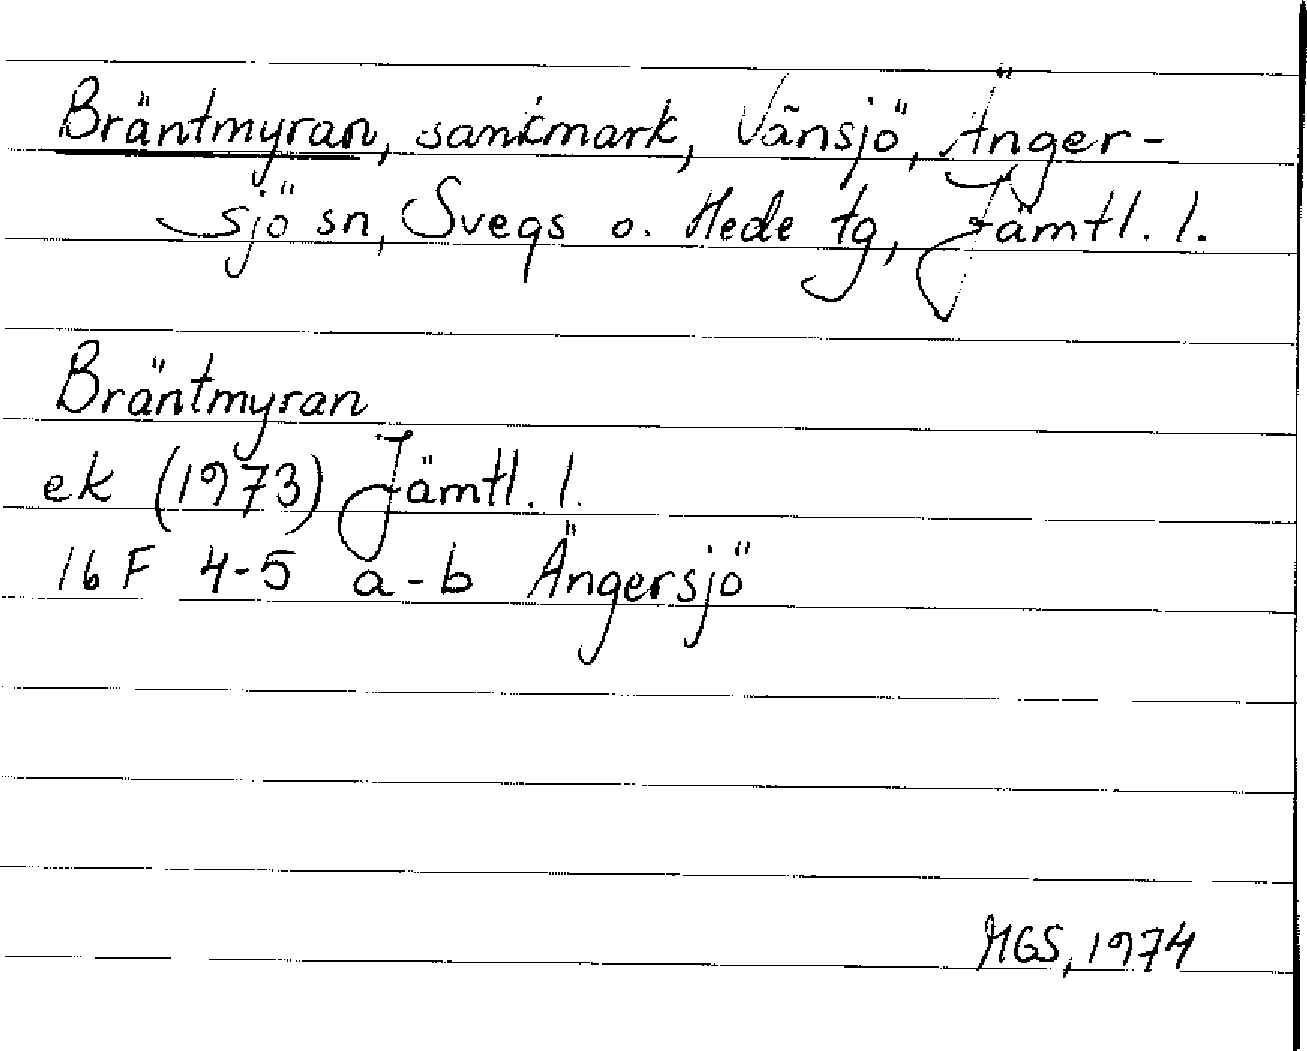 Bräntmyran, sankmark, Vänsjö, Änger-
sjö sn, Svegs o. Hede tg, Jämtl. l.
Bräntmyran
ek (1973) Jämtl. l.
16 F 4-5 a-b Ängersjö
MGS, 1974